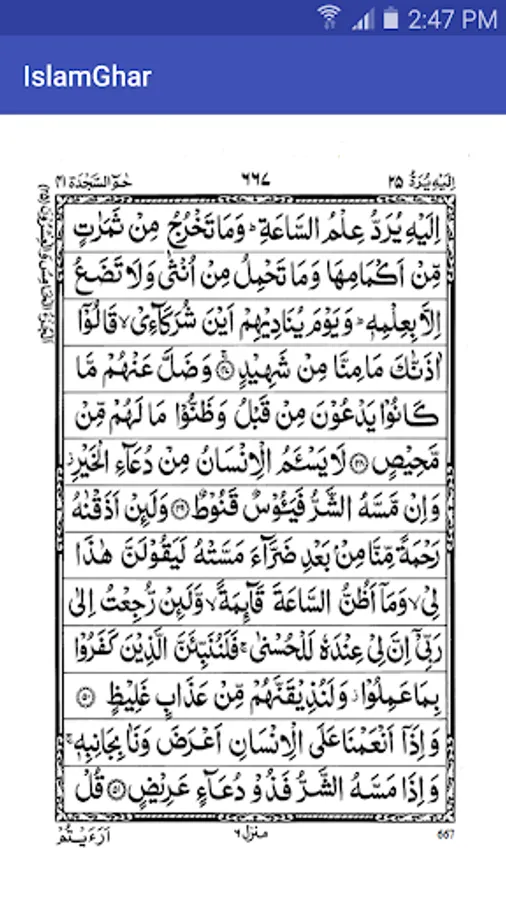 2:47 PM
IslamGhar
اِلَیْهِ یُرَدُّ ۲۵
٦٦٧
حٰمٓ السَّجْدَة ۴۱
اِلَیْهِ یُرَدُّ عِلْمُ السَّاعَةِ ؕ وَمَا تَخْرُجُ مِنْ ثَمَرٰتٍ
مِّنْ اَكْمَامِهَا وَمَا تَحْمِلُ مِنْ اُنْثٰى وَلَا تَضَعُ
اِلَّا بِعِلْمِهٖ ؕ وَیَوْمَ یُنَادِیْهِمْ اَیْنَ شُرَكَآءِیْ ۙ قَالُوْۤا
اٰذَنّٰكَ مَا مِنَّا مِنْ شَهِیْدٍ ۚ‏﴿۴۷﴾ وَضَلَّ عَنْهُمْ مَّا
كَانُوْا یَدْعُوْنَ مِنْ قَبْلُ وَظَنُّوْا مَا لَهُمْ مِّنْ
مَّحِیْصٍ ﴿۴۸﴾ لَا یَسْـَٔمُ الْاِنْسَانُ مِنْ دُعَآءِ الْخَیْرِ ؗ
وَاِنْ مَّسَّهُ الشَّرُّ فَیَـُٔوْسٌ قَنُوْطٌ ﴿۴۹﴾ وَلَىِٕنْ اَذَقْنٰهُ
رَحْمَةً مِّنَّا مِنْۢ بَعْدِ ضَرَّآءَ مَسَّتْهُ لَیَقُوْلَنَّ هٰذَا
لِیْ ۙ وَمَاۤ اَظُنُّ السَّاعَةَ قَآىِٕمَةً ۙ وَّلَىِٕنْ رُّجِعْتُ اِلٰى
رَبِّیْۤ اِنَّ لِیْ عِنْدَهٗ لَلْحُسْنٰى ۚ فَلَنُنَبِّئَنَّ الَّذِیْنَ كَفَرُوْا
بِمَا عَمِلُوْا ؗ وَلَنُذِیْقَنَّهُمْ مِّنْ عَذَابٍ غَلِیْظٍ ﴿۵۰﴾
وَاِذَاۤ اَنْعَمْنَا عَلَى الْاِنْسَانِ اَعْرَضَ وَنَاٰ بِجَانِبِهٖ ۚ
وَاِذَا مَسَّهُ الشَّرُّ فَذُوْ دُعَآءٍ عَرِیْضٍ ﴿۵۱﴾ قُلْ
اَرَءَیْتُمْ
منزل ٦
667